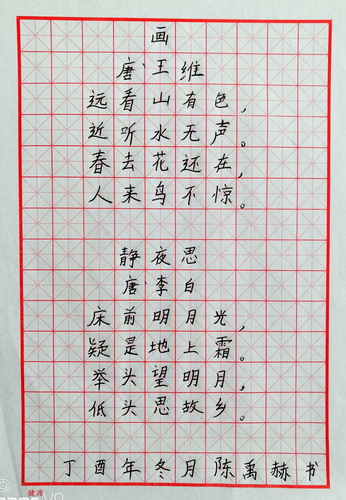 画
唐、王维
远看山有色，
近听水无声。
春去花还在，
人来鸟不惊。
静夜思
唐、李白
床前明月光，
疑是地上霜。
举头望明月，
低头思故乡。
丁酉年冬月陈禹赫书